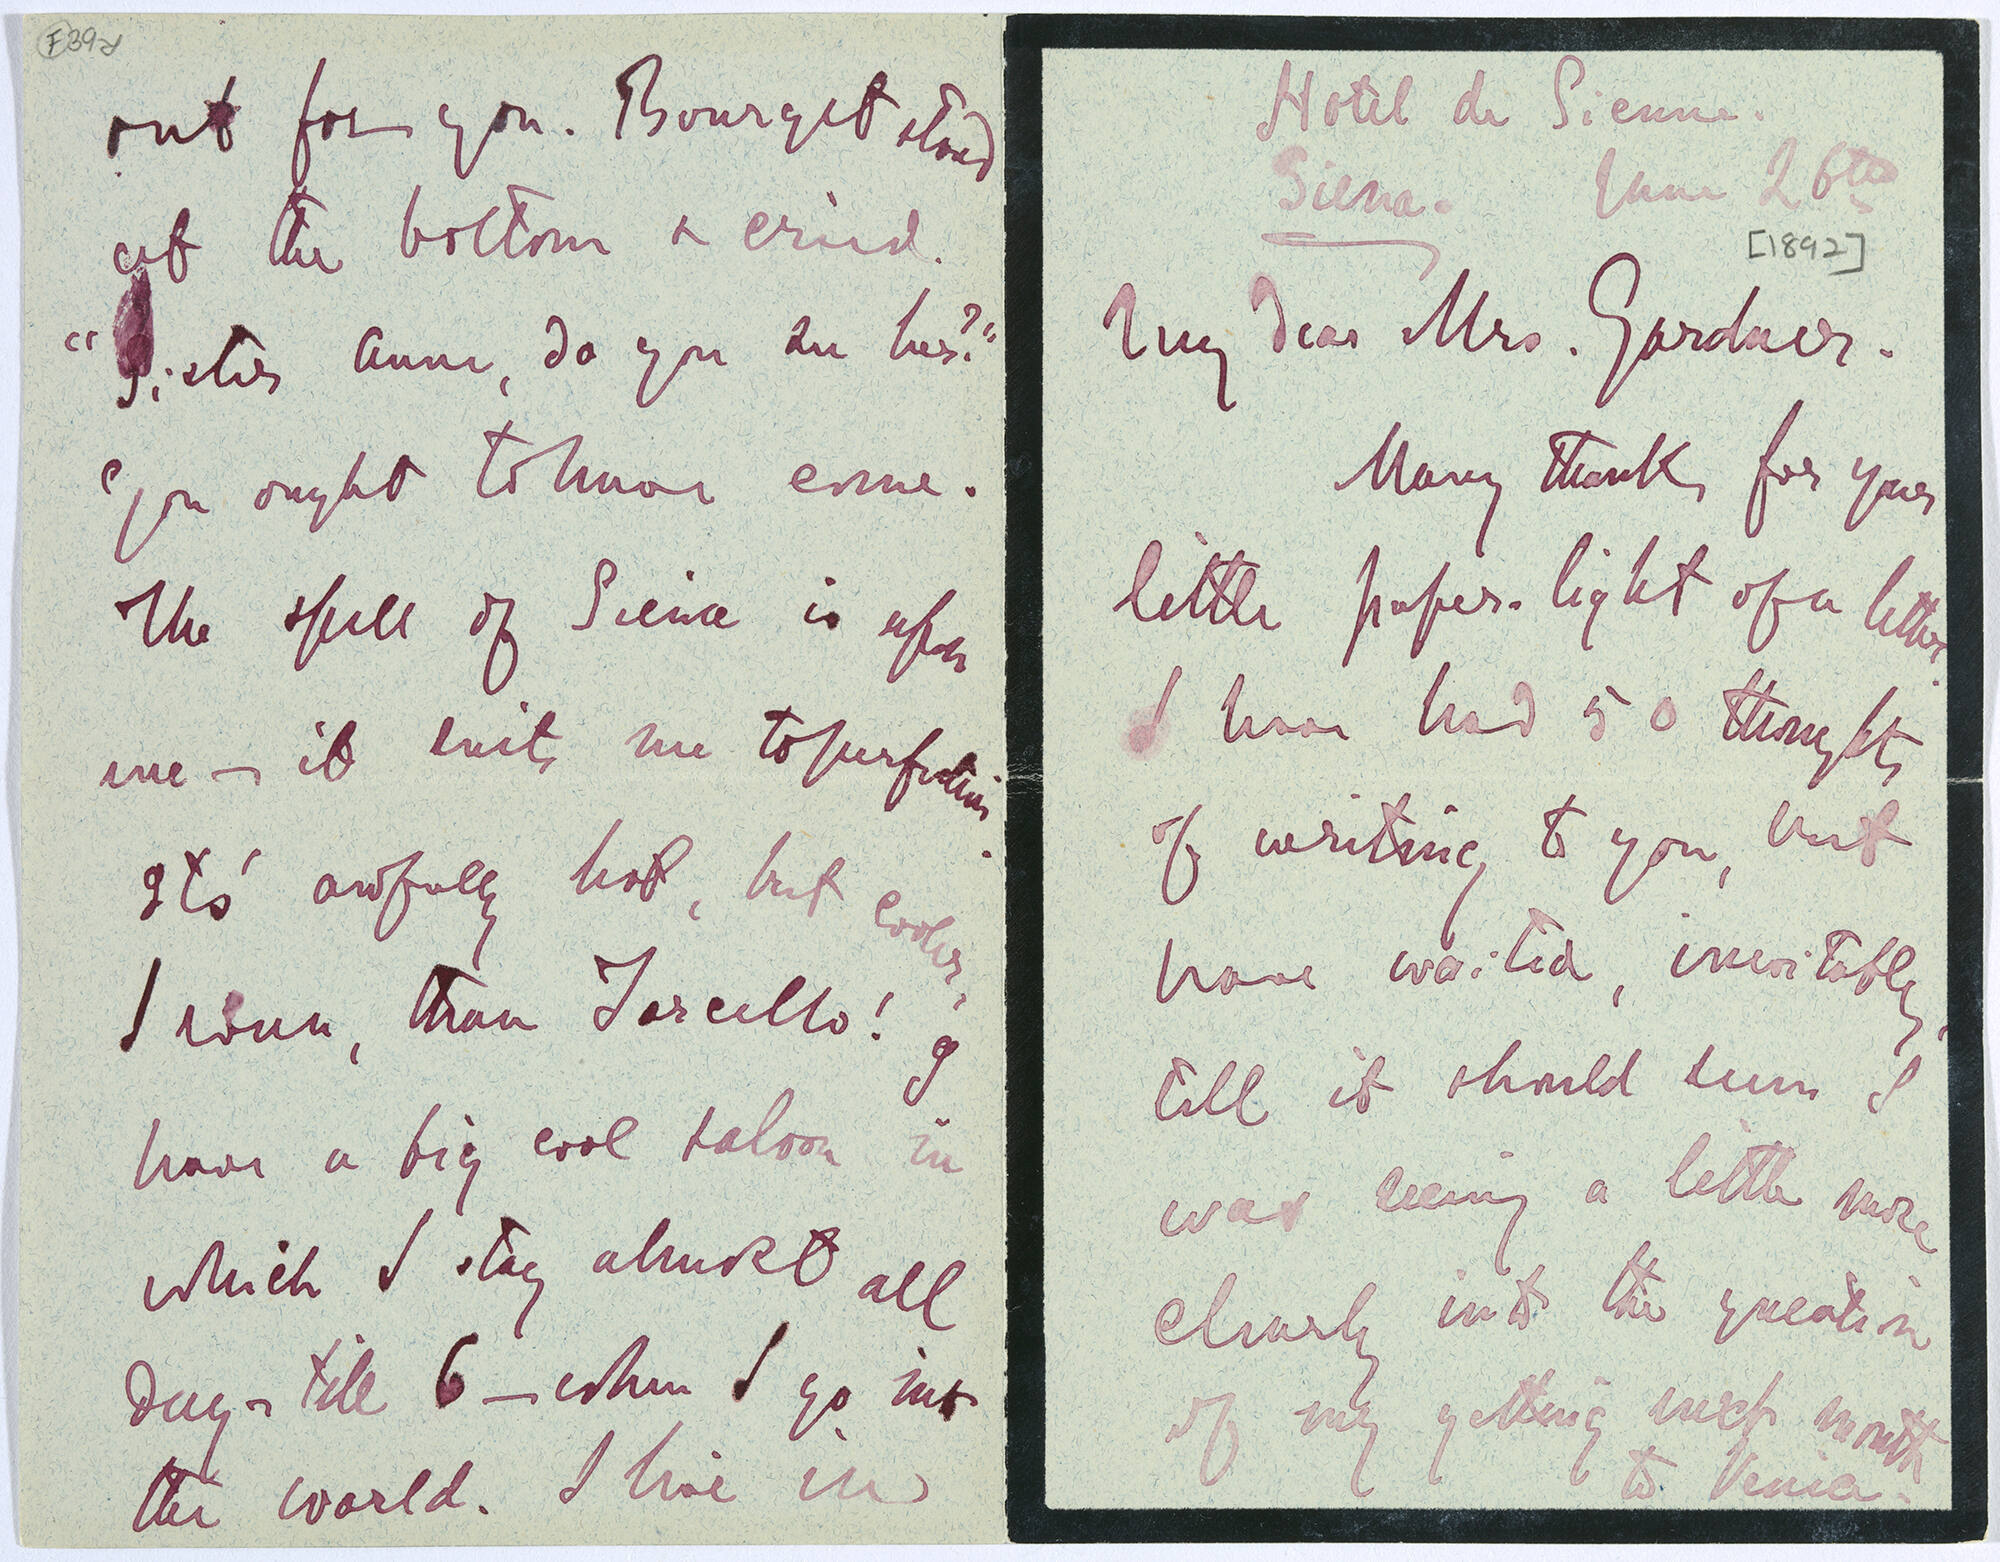 F39d
out for you. Bourget stood
at the bottom & cried.
"Sister Anne, do you see her?"
You ought to have come.
The spell of Siena is upon
me – it suits me to perfection.
Its' awfully hot, but cooler,
I ween, than Torcello! I
have a big cool saloon in
which I stay almost all
day – till 6 – when I go into
the world. I live in
Hotel de Sienne.
Siena. June 26th
[1892]
My dear Mrs. Gardner.
Many thanks for your
little paper-light of a letter.
I have had 50 thoughts
of writing to you, but
have waited, inevitably,
till it should seem I
was seeing a little more
clearly into the question
of my getting next month
to Venice.